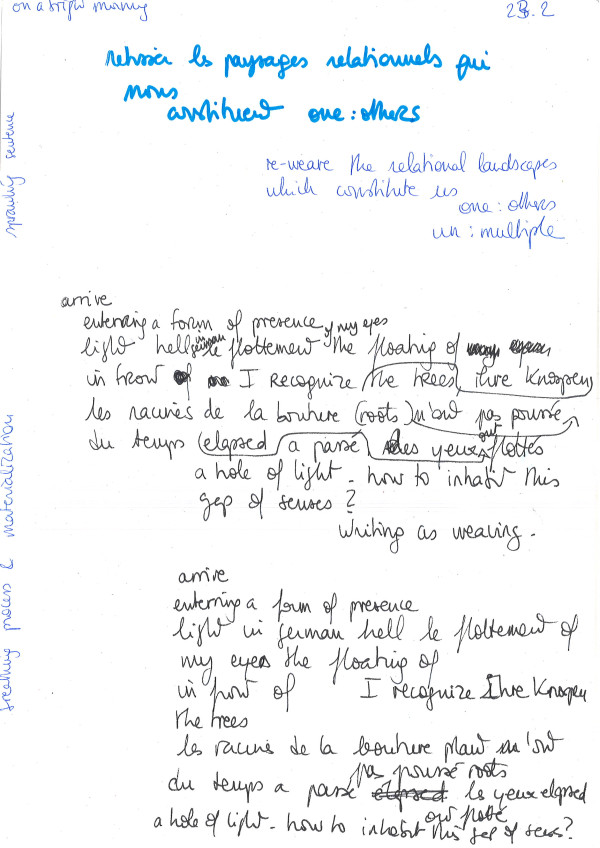 on a bright morning
23.2
retisser les paysages relationnels qui
nous
constituent one:others
re-weave the relational landscapes
which constitute us
one:others
un:multiple
sprouting sentence
breathing process & materialization
arrive
enterring a form of presence of my eyes
light hell in german le flottement the floating of
in front of I recognize the trees ihre Knospen
les racines de la bouture (roots) n'ont pas poussé
du temps (elapsed a passé les yeux ont flottés
a hole of light - how to inhabit this
gap of senses?
writing as weaving.
arrive
enterring a form of presence
light in german hell le flottement of
my eyes the floating of
in front of I recognize Ihre Knospen
the trees
les racines de la bouture n'ont
pas poussé roots
du temps a passé elapsed les yeux elapsed
ont flotté
a hole of light - how to inhabit this gap of senses?